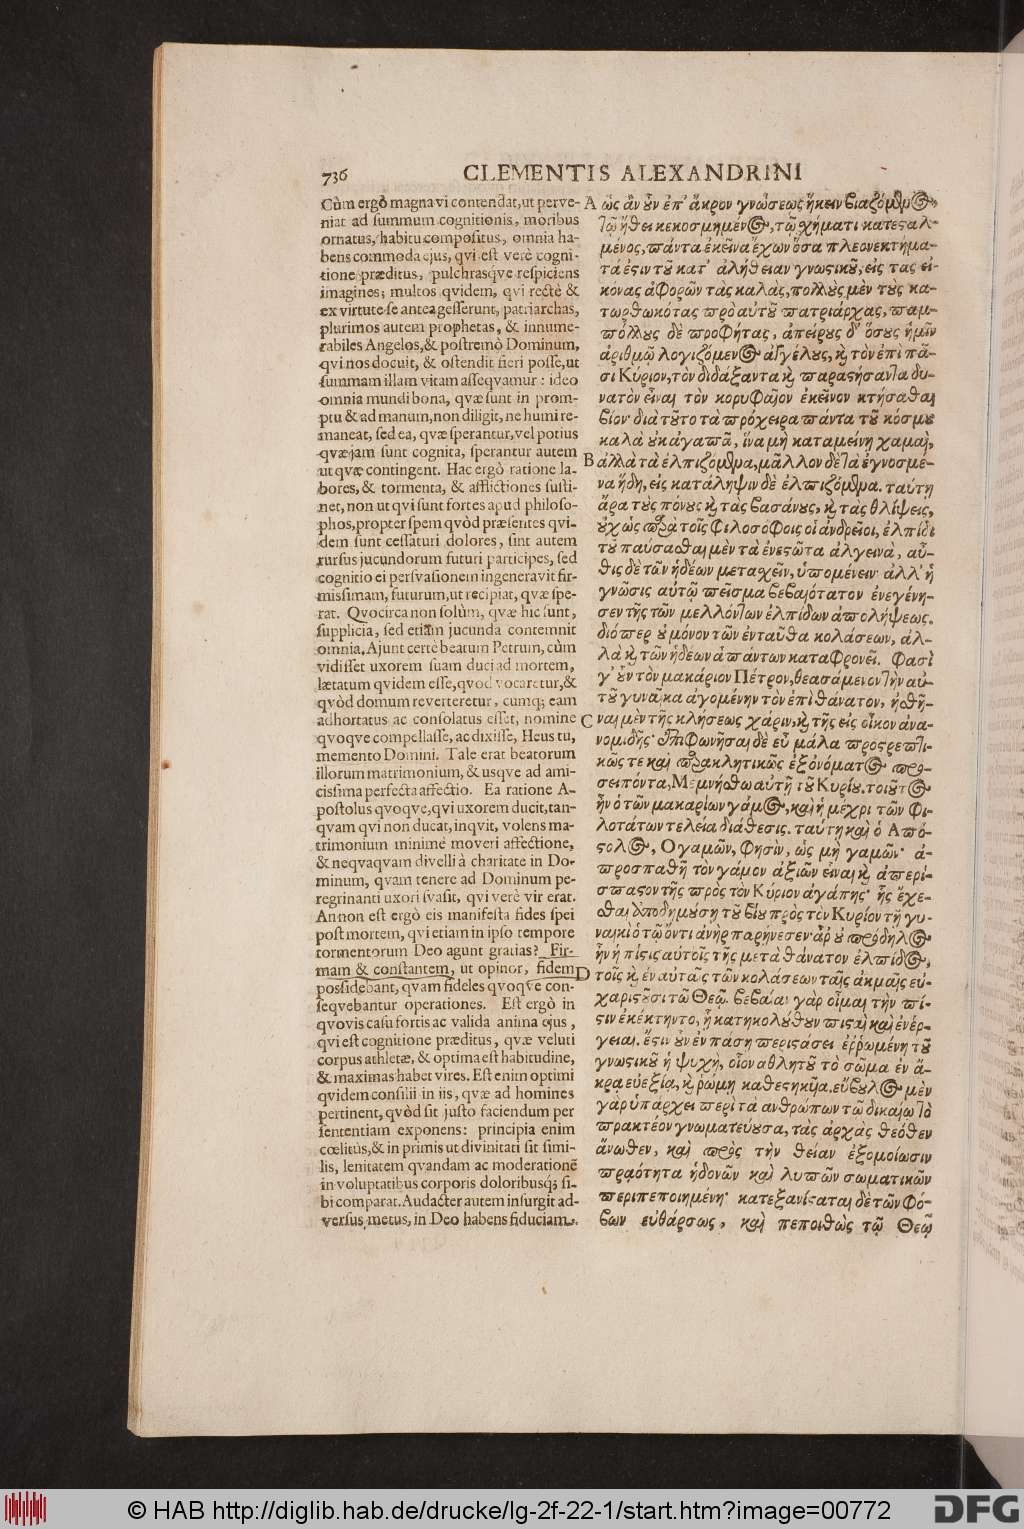 736 CLEMENTIS ALEXANDRINI
Cùm ergò magna vi contendat, ut perve-
niat ad summum cognitionis, moribus
ornatus, habitu compositus, omnia ha-
bens commoda ejus, qvi est verè cogni-
tione præditus, pulchrasqve respiciens
imagines; multos qvidem, qvi rectè &
ex virtute se antea gesserunt, patriarchas,
plurimos autem prophetas, & innume-
rabiles Angelos, & postremò Dominum,
qvi nos docuit, & ostendit fieri posse, ut
summam illam vitam asseqvamur: ideo
omnia mundi bona, qvæ sunt in prom-
ptu & ad manum, non diligit, ne humi re-
maneat, sed ea, qvæ sperantur, vel potius
qvæ jam sunt cognita, sperantur autem
ut qvæ contingent. Hac ergò ratione la-
bores, & tormenta, & afflictiones susti-
net, non ut qvi sunt fortes apud philoso-
phos, propter spem qvòd præsentes qvi-
dem sunt cessaturi dolores, sint autem
rursus jucundorum futuri participes, sed
cognitio ei persvasionem ingeneravit fir-
missimam, futurum, ut recipiat, qvæ spe-
rat. Qvocirca non solùm, qvæ hic sunt,
supplicia, sed etiam jucunda contemnit
omnia. Ajunt certè beatum Petrum, cùm
vidisset uxorem suam duci ad mortem,
lætatum qvidem esse, qvod vocaretur, &
qvòd domum reverteretur, cumq; eam
adhortatus ac consolatus esset, nomine
qvoqve compellasse, ac dixisse, Heus tu,
memento Domini. Tale erat beatorum
illorum matrimonium, & usqve ad ami-
cissima perfecta affectio. Ea ratione A-
postolus qvoqve, qvi uxorem ducit, tan-
qvam qvi non ducat, inqvit, volens ma-
trimonium minimè moveri affectione,
& neqvaqvam divelli à charitate in Do-
minum, qvam tenere ad Dominum pe-
regrinanti uxori svasit, qvi verè vir erat.
An non est ergò eis manifesta fides spei
post mortem, qvi etiam in ipso tempore
tormentorum Deo agunt gratias? Fir-
mam & constantem, ut opinor, fidem
possidebant, qvam fideles qvoqve con-
seqvebantur operationes. Est ergò in
qvovis casu fortis ac valida anima ejus,
qvi est cognitione præditus, qvæ veluti
corpus athletæ, & optima est habitudine,
& maximas habet vires. Est enim optimi
qvidem consilii in iis, qvæ ad homines
pertinent, qvòd sit justo faciendum per
sententiam exponens: principia enim
cœlitùs, & in primis ut divinitati sit simi-
lis, lenitatem qvandam ac moderationē
in voluptatibus corporis doloribusq; si-
bi comparat. Audacter autem insurgit ad-
versus metus, in Deo habens fiduciam.
A ὡς ἂν οὖν ἐπ' ἄκρον γνώσεως ἥκειν βιαζόμενος,
τῷ ἤθει κεκοσμημένος, τῷ χήματι κατεσταλ-
μένος, πάντα ἐκεῖνα ἔχων ὅσα πλεονεκτήμα-
τά ἐστιν τοῦ κατ' ἀλήθειαν γνωστικοῦ, εἰς τας εἰ-
κόνας ἀφορῶν τὰς καλὰς, πολλοὺς μὲν τοὺς κα-
τωρθωκότας πρὸ αὐτοῦ πατριάρχας, παμ-
πόλλους δὲ προφήτας, ἀπείρους δ' ὅσους ἡμῖν
ἀριθμῷ λογιζόμενος ἀγγέλους, καὶ τὸν ἐπὶ πᾶ-
σι Κύριον, τὸν διδάξαντα καὶ παραστήσαντα δυ-
νατὸν εἶναι τὸν κορυφαῖον ἐκεῖνον κτήσασθαι
βίον· διὰ τοῦτο τὰ πρόχειρα πάντα τοῦ κόσμου
καλὰ οὐκ ἀγαπᾷ, ἵνα μὴ καταμείνῃ χαμαὶ,
B ἀλλὰ τὰ ἐλπιζόμενα, μᾶλλον δὲ τὰ ἐγνοσμέ-
να ἤδη, εἰς κατάληψιν δὲ ἐλπιζόμενα. ταύτῃ
ἄρα τοὺς πόνους καὶ τὰς βασάνους, καὶ τὰς θλίψεις,
οὐχ ὡς παρὰ τοῖς φιλοσόφοις οἱ ἀνδρεῖοι, ἐλπίδι
τοῦ παύσασθαι μὲν τὰ ἐνεστῶτα ἀλγεινὰ, αὖ-
θις δὲ τῶν ἡδέων μεταχεῖν, ὑπομένειν· ἀλλ' ἡ
γνῶσις αὐτῷ πεῖσμα βεβαιότατον ἐνεγένη-
σεν τῆς τῶν μελλόντων ἐλπίδων ἀπολήψεως.
διόπερ οὐ μόνον τῶν ἐνταῦθα κολάσεων, ἀλ-
λὰ καὶ τῶν ἡδέων ἁπάντων καταφρονεῖ. Φασὶ
γ' οὖν τὸν μακάριον Πέτρον, θεασάμενον τὴν αὐ-
τοῦ γυναῖκα ἀγομένην τὸν ἐπὶ θάνατον, ἡσθῆ-
C ναι μὲν τῆς κλήσεως χάριν, καὶ τῆς εἰς οἶκον ἀνα-
νομιδῆς· ἐπιφωνῆσαι δὲ εὖ μάλα προτρεπτι-
κῶς τε καὶ παρακλητικῶς ἐξ ὀνόματος προ-
σειπόντα, Μεμνήσθω αὐτῇ τοῦ Κυρίου. τοιοῦτος
ἦν ὁ τῶν μακαρίων γάμος, καὶ ἡ μέχρι τῶν φι-
λοτάτων τελεία διάθεσις. ταύτῃ καὶ ὁ Ἀπό-
στολος, Ὁ γαμῶν, φησὶν, ὡς μὴ γαμῶν· ἀ-
προσπαθῆ τὸν γάμον ἀξιῶν εἶναι καὶ ἀπερί-
σπαστον τῆς πρὸς τὸν Κύριον ἀγάπης· ἧς ἔχε-
σθαι ἀποδημούσῃ τοῦ βίου πρὸς τὸν Κυρίον τῇ γυ-
ναικὶ ὁ τῷ ὄντι ἀνὴρ παρῄνεσεν· ἆρ' οὐ πρόδηλος
ἦν ἡ πίστις αὐτοῖς τῆς μετὰ θάνατον ἐλπίδος,
D τοῖς καὶ ἐν αὐταῖς τῶν κολάσεων ταῖς ἀκμαῖς εὐ-
χαριστοῦσι τῷ Θεῷ. βεβαίαν γὰρ οἶμαι τὴν πί-
στιν ἐκέκτηντο, ᾗ κατηκολούθουν πισταὶ καὶ ἐνέρ-
γειαι. ἔστιν οὖν ἐν πάσῃ περιστάσει ἐῤῥωμένη τοῦ
γνωστικοῦ ἡ ψυχὴ, οἷον ἀθλητοῦ τὸ σῶμα ἐν ἄ-
κρᾳ εὐεξίᾳ, καὶ ῥώμῃ καθεστηκῦια. εὔβουλος μὲν
γὰρ ὑπάρχει περὶ τὰ ἀνθρώπων τῷ δικαίῳ τὸ
πρακτέον γνωματεύουσα, τὰς ἀρχὰς θεόθεν
ἄνωθεν, καὶ πρὸς τὴν θείαν ἐξομοίωσιν
πραότητα ἡδονῶν καὶ λυπῶν σωματικῶν
περιπεποιημένη· κατεξανίσταται δὲ τῶν φό-
βων εὐθάρσως, καὶ πεποιθὼς τῷ Θεῷ
© HAB http://diglib.hab.de/drucke/lg-2f-22-1/start.htm?image=00772
DFG